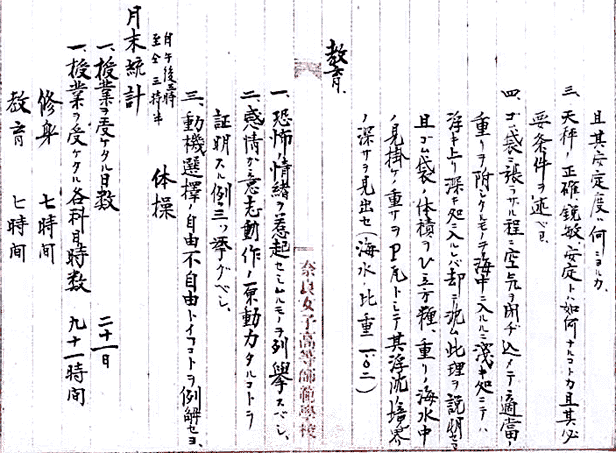 且其安定度ハ何ニヨルカ
三、天秤ノ正確、鋭敏、安定トハ如何ナルコトカ且其必
要条件ヲ述ベヨ、
四、ゴム袋ニ張ラサル程ニ空気ヲ閉ヂ込メテ適当ノ
重リヲ附シタルモノヲ海中ニ入ルルニ浅キ処ニテハ
浮キ上リ深キ処ニ入レバ却テ沈ム此理ヲ説明セヨ
且ゴム袋ノ体積ヲV立方糎、重リノ海水中
ノ見掛ケノ重サヲP瓦トシテ其浮沈ノ境界
ノ深サヲ見出セ(海水ノ比重一.〇二)
教育、
一、恐怖ノ情緒ヲ惹起セシムルモノヲ列挙スベシ、
二、感情ガ意志動作ノ原動力タルコトヲ
証明スル例三ツヲ挙グベシ、
三、動機選擇ノ自由不自由トイフコトヲ例解セヨ、
自午後三時
至仝三時半 体操
月末統計
一、授業ヲ受ケタル日数 二十一日
一、授業ヲ受ケタル各科目時数 九十一時間
修身 七時間
教育 七時間
奈良女子高等師範學校